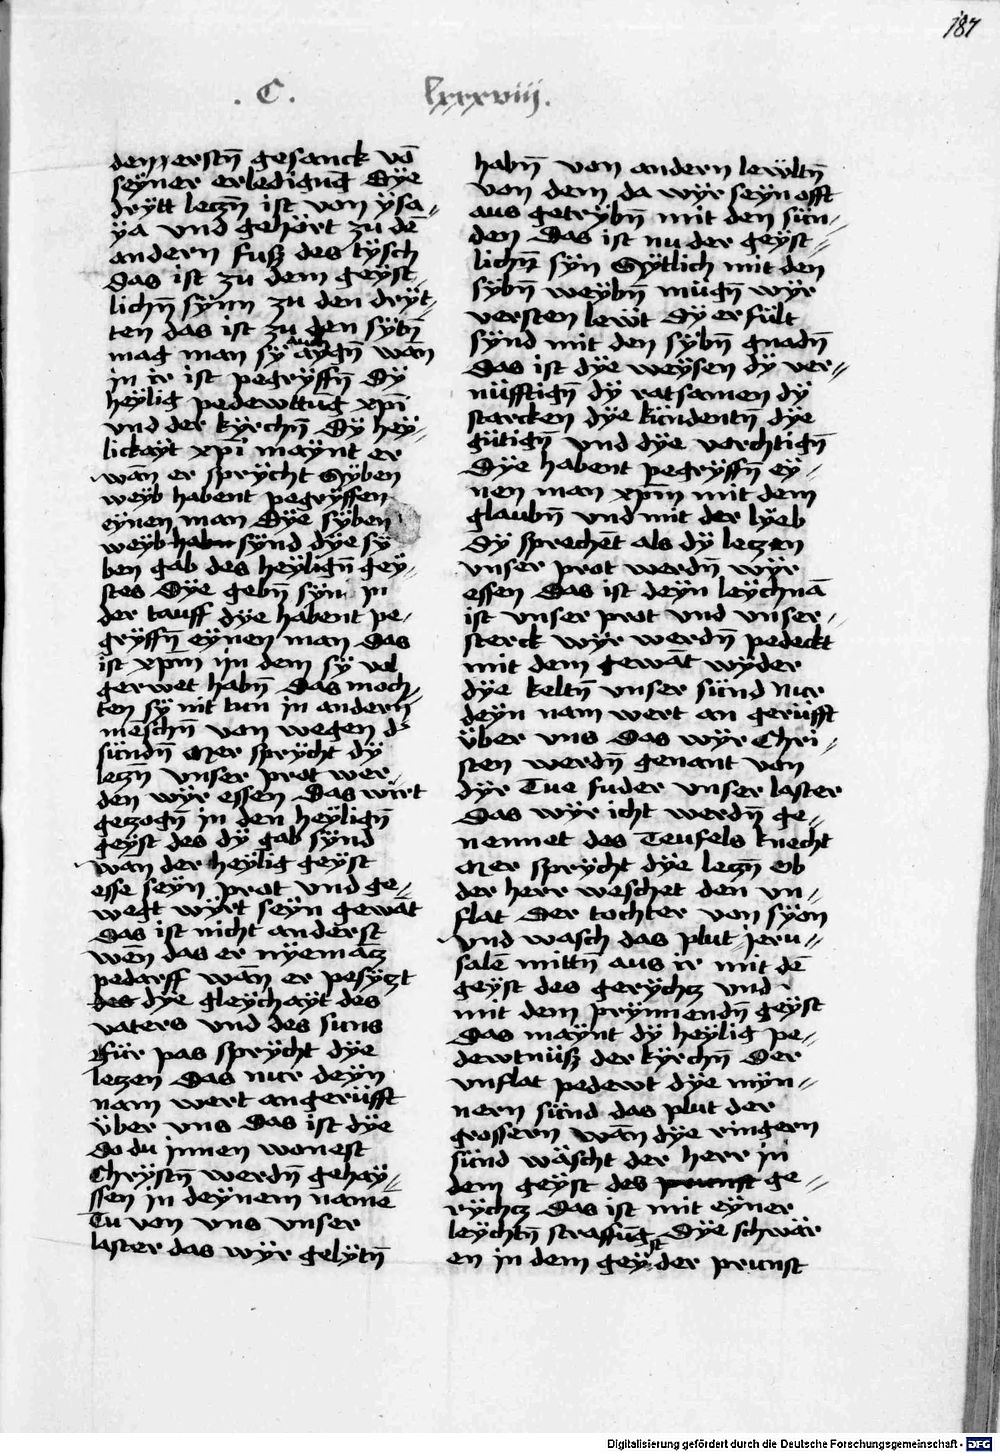 187
.C. lxxxviij.
den erstn̄ gesanck vō
seyner erledigūg Dÿe
drÿtt leczn̄ ist von ÿsa-
ÿa und gehört zu dē
andern fusz des tÿsch
Das ist zu dem geÿst-
lichn̄ sÿnn zu den drÿt-
ten das ist zu den sÿtn̄
mag man sÿ auch aÿgn̄ wān
jn ir ist pegrÿffn̄ Dÿ
heÿlig pedewttūg xpī
vnd der kÿrchn̄ Dÿ heÿ-
lickaÿt xpī maÿnt er
wān er sprÿcht Sÿben
weÿb habent pegrÿffen
eÿnen man Dÿe sÿben
weÿb habn sÿnd dÿe sÿ
ben gab des heÿlign̄ geÿ-
stes Dÿe gebn̄ sÿn jn
der tauff dÿe habent pe-
grÿffn̄ eÿnen man Das
ist xpm̄ jn dem sÿ vol
gerwet habn̄ Das moch-
ten sÿ nit tun jn andern
mēschn̄ von wegen d'
sündn̄ Mer sprÿcht dÿ
leczn̄ vnser prot wer-
den wÿr essen Das wirt
geczogn̄ jn den heÿlign̄
geÿst des dÿ gab sÿnd
wan der heÿlig geÿst
esse seÿn prot vnd ge-
wegt wÿrt seÿn gewāt
Das ist nicht anderst
wēn das er nÿemācz
pedarff wān er pesÿczt
des dÿe gleÿchaÿt des
vaters vnd des suns
Für pas sprÿcht dÿe
leczen Das nur deÿn
nam wert angerüfft
über vns Das ist dÿe
Do du jnnen wonest
Chrÿstn̄ werdn̄ gehaÿ-
ssen jn deÿnem namē
Tu von vns vnser
laster das wÿr gelÿtn̄
habn̄ von andern lewltn̄
von dem da wÿr seÿn offt
aus getrÿbn̄ mit den sün-
den Das ist nu der geÿst-
lichn̄ sÿn Sÿtlich mit den
sÿbn̄ weÿbn̄ mügn̄ wÿr
versten lewt dÿ erfült
sÿnd mit den sÿbn̄ gnadn̄
Das ist dÿe weÿsen dÿ ver-
nüfftign̄ dÿ ratsamen dÿ
starcken dÿe kündentn̄ dÿe
gütign̄ vnd dÿe vorchtign̄
Dÿe habent pegrÿffn̄ eÿ-
nen man xpm̄ mit dem
glaubn̄ vnd mit der lÿeb
Dÿ sprechēt als dÿ leczen
vnser prot werdn̄ wÿr
essen Das ist deÿn leÿchnā
ist vnser prot vnd vnser-
sterck wÿr werdn̄ pedeckt
mit dem gewāt wÿder
dÿe keltn̄ vnser sünd Nur
deÿn nam wert an gerüfft
über vns Das wÿr Chri-
sten werdn̄ genant von
dÿr Tue fuder vnser laster
Das wÿr icht werdn̄ ge-
nennet des Teufels knecht
Mer sprÿcht dÿe leczn̄ Ob
der herr weschet den vn-
flat Der tochter von sÿon
vnd wasch das plut jeru-
salē mittn̄ aus ir mit dē
geÿst des gerÿchcz vnd
mit dem prÿnnendn̄ geÿst
Das maÿnt dÿ heÿlig pe-
dewtnüsz der kÿrchn̄ Der
vnflat pedewt dÿe mÿn-
nern sünd das plut der
grossern wān dÿe ringern
sünd wäscht der herr jn
dem geÿst des prunst ge-
rÿchcz Das ist mit eÿner
leÿchtn̄ straffūg Dÿe schwär
en jn dem geÿst der prunst
Digitalisierung gefördert durch die Deutsche Forschungsgemeinschaft - DFG